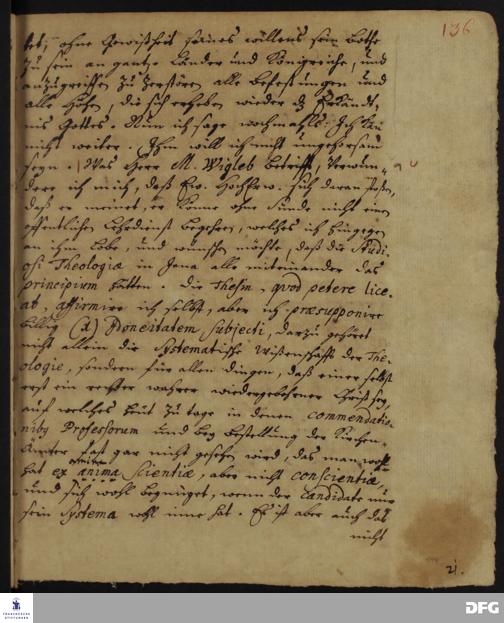 136
tet, ohne Gewißheit seines willens sein Botte
zu sein an gantze Länder und Königreiche, und
anzugreiffen zu zerstören alle Befestungen und
alle Höhen, die sich erheben wieder d Erkändt-
nis Gottes. Nun ich sage nochmahls: Ich kan
nicht weiter. Ihm will ich nicht ungehorsam
seyn. Was Herr M. Wigleb betrifft, verwun-
dere ich mich, daß Ew. HochEhrw. sich daran stoßen,
daß er meinet, er könne ohne Sünde nicht einen
öffentlichen Lehrdienst begehren, welches ich hingegen
an ihm lobe, und wünschen möchte, daß die Studi-
osi Theologiæ in Jena alle miteinander das
principium hätten. Die Thesin, quod petere lice-
at, affirmire ich selbst, aber ich præsupponire
billig (α) Idoneitatem subjecti, darzu gehöret
nicht allein die Systematische Wißenschafft der The-
ologie, sondern für allen dingen, daß einer selbst
erst ein rechter wahrer wiedergebohrner Christ sey,
auf welches heut zu tage in denen commendatio-
nibus Professorum und bey bestellung der Kirchen-
Ämter fast gar nicht gesehen wird, das man wohl
hat examina scientiæ, aber nicht conscientiæ,
und sich wohl begnüget, wenn der Candidate nur
sein Systema wohl inne hat. Es ist aber auch das
nicht
21.
FRANCKESCHE
STIFTUNGEN
DFG